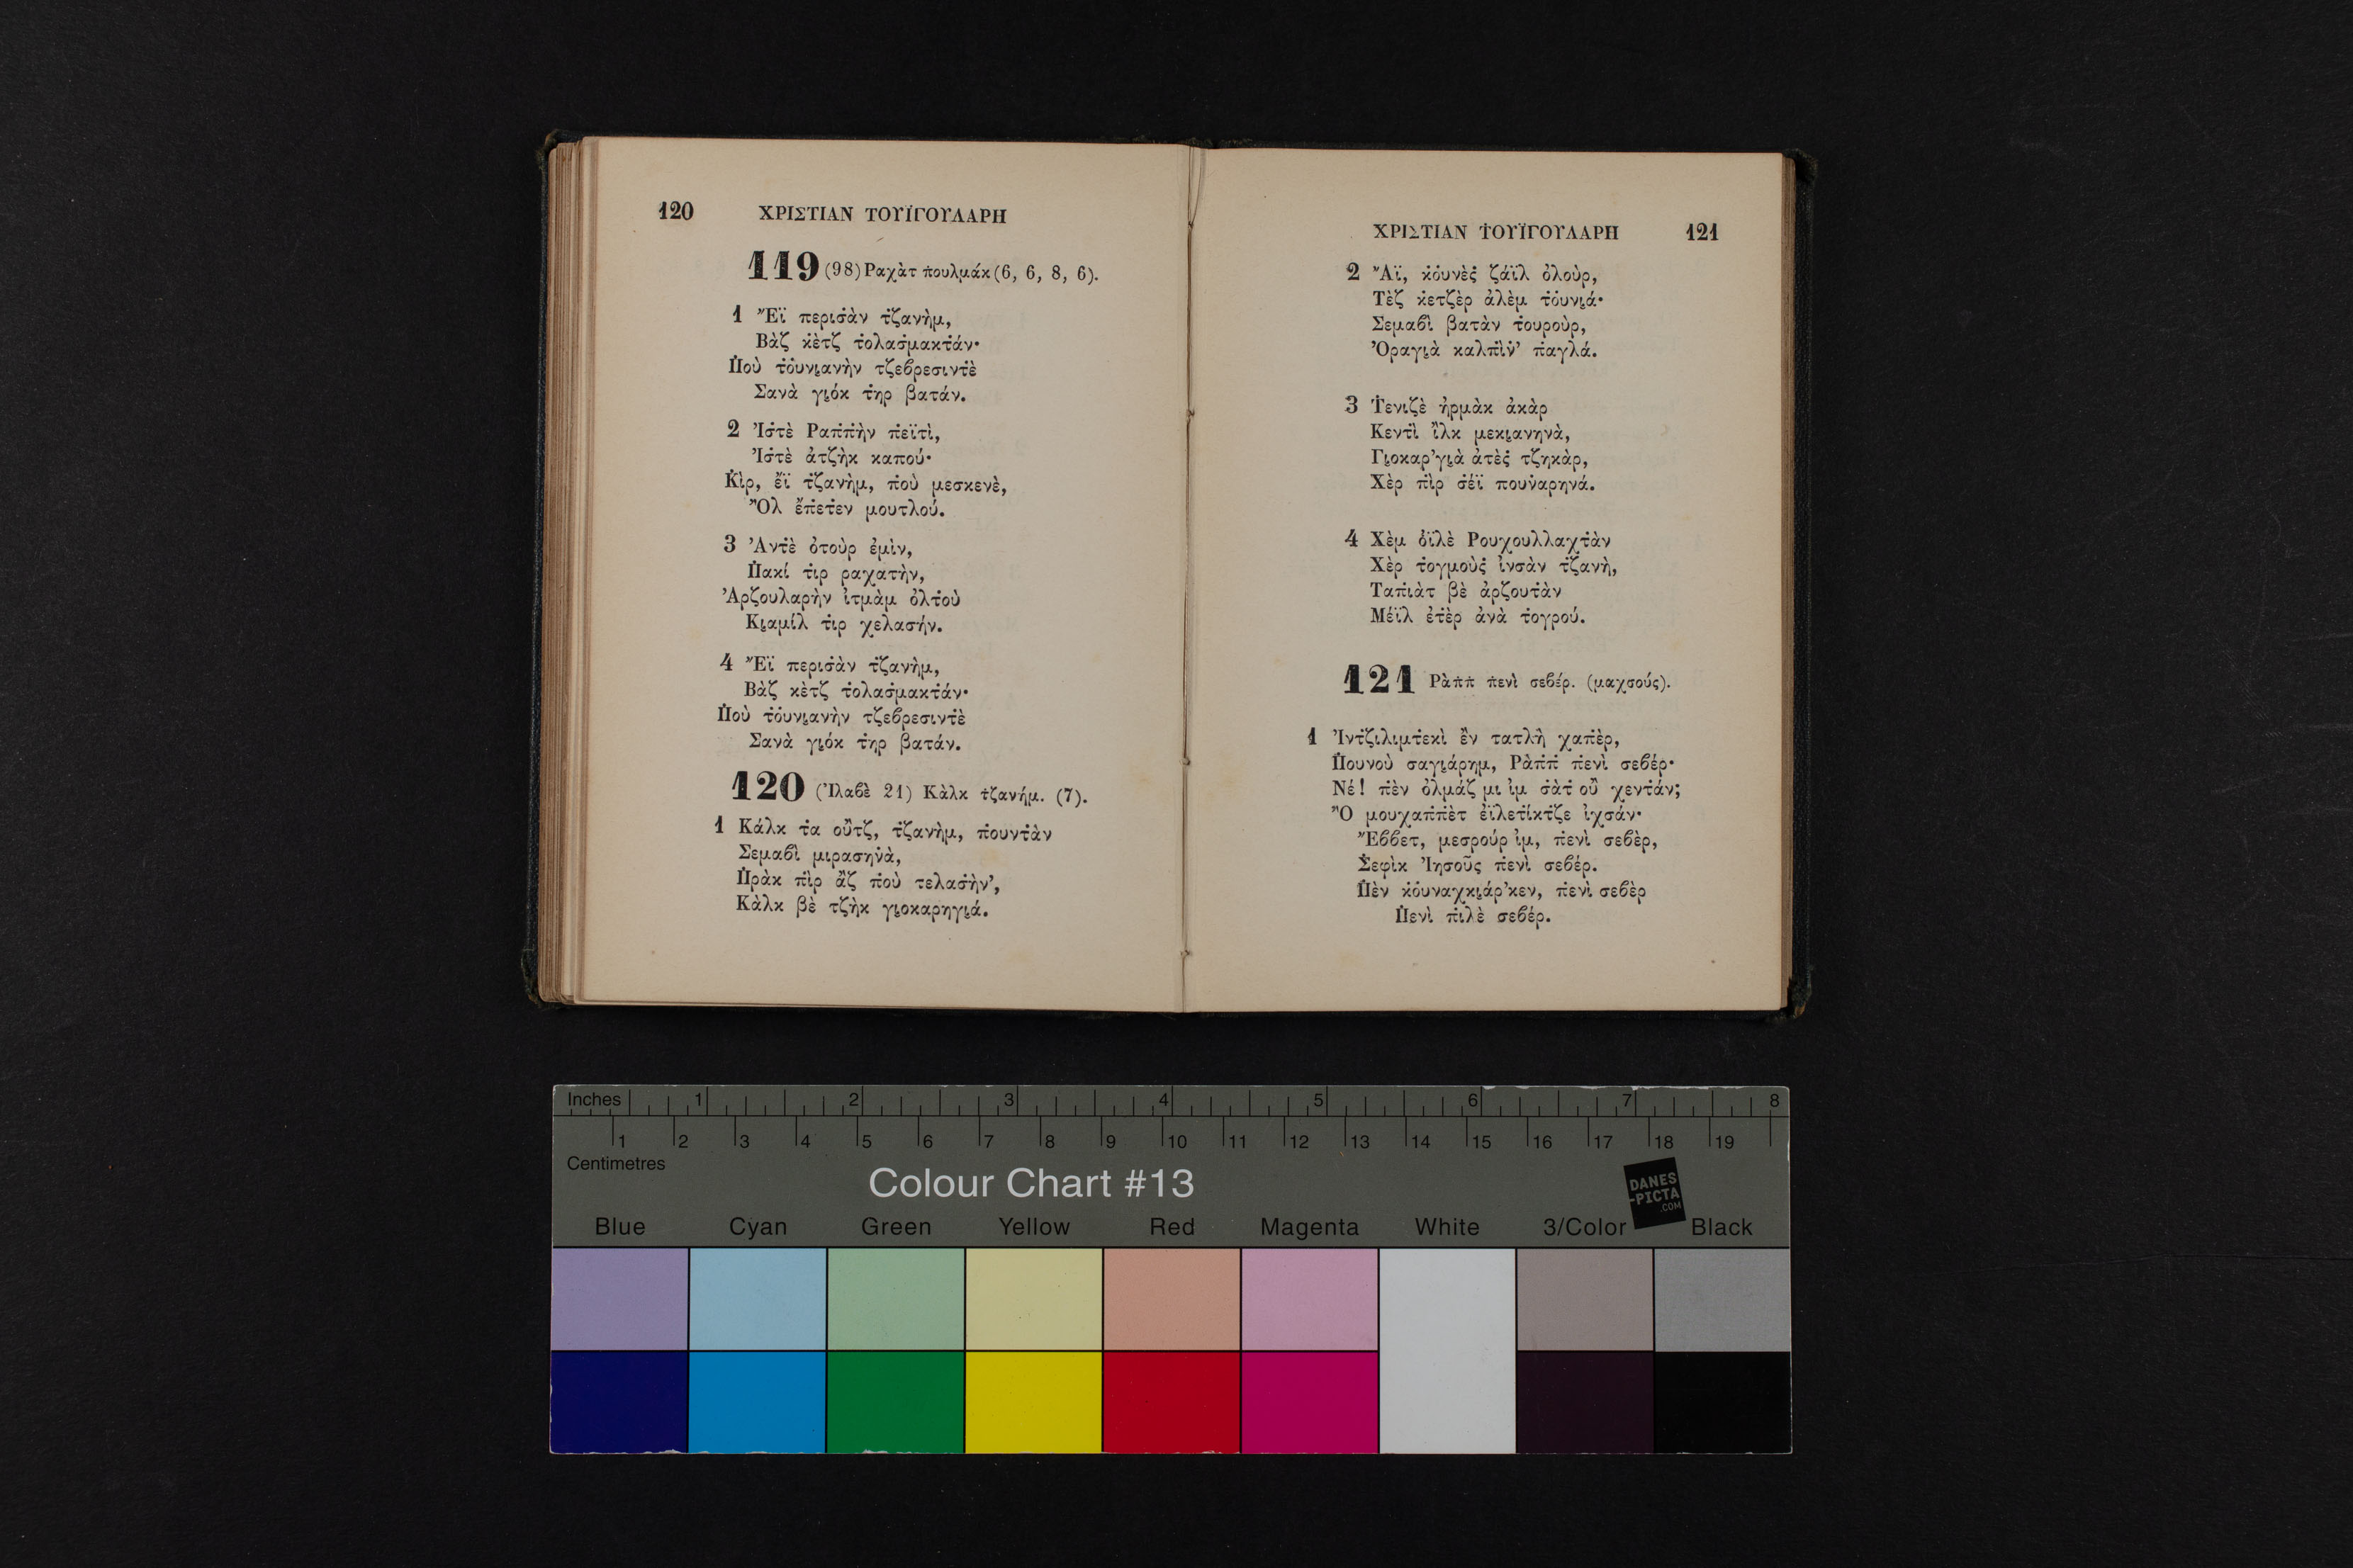 120 ΧΡΙΣΤΙΑΝ ΤΟΥΪΓΟΥΛΑΡΗ
119 (98) Ραχὰτ π̇ουλμάκ (6, 6, 8, 6).
1 Ἔϊ περισ̇ὰν τ̇ζανὴμ,
Βὰζ κ̇ὲτζ τ̇ολασ̇μακτ̇άν·
Π̇οὺ τ̇όυνι̯ανὴν τζεβρεσιντ̇ὲ
Σανὰ γι̯όκ τ̇ηρ βατάν.
2 Ἰσ̇τὲ Ραπ̇π̇ὴν π̇εϊτὶ,
Ἰσ̇τὲ ἀτζὴκ καπού·
Κ̇ὶρ, ἔϊ τ̇ζανὴμ, π̇οὺ μεσκενὲ,
Ὂλ ἔπ̇ετ̇εν μουτλού.
3 Ἀντ̇ὲ ὀτοὺρ ἐμὶν,
Π̇ακί τ̇ιρ ραχατὴν,
Ἀρζουλαρὴν ἰτμὰμ ὀλτ̇οὺ
Κι̯αμίλ τ̇ιρ χελασήν.
4 Ἔϊ περισ̇ὰν τ̇ζανὴμ,
Βὰζ κὲτζ τ̇ολασ̇μακτ̇άν·
Π̇οὺ τ̇όυνι̯ανὴν τζεβρεσιντ̇ὲ
Σανὰ γι̯όκ τ̇ηρ βατάν.
120 (Ἰλαβὲ 21) Κὰλκ τ̇ζανήμ. (7).
1 Κάλκ τ̇α οὒτζ, τ̇ζανὴμ, π̇ουντ̇ὰν
Σεμαβὶ μιρασην̇ὰ,
Π̇ρὰκ π̇ὶρ ἂζ π̇οὺ τελασ̇ὴν̓,
Κὰλκ βὲ τζὴκ γι̯οκαρηγι̯ά.
ΧΡΙΣΤΙΑΝ Τ̇ΟΥΪΓΟΥΛΑΡΗ 121
2 Ἂϊ, κ̇όυνὲς̇ ζάϊλ ὀλοὺρ,
Τὲζ κ̇ετζὲρ ἀλὲμ τ̇όυνι̯ά·
Σεμαβὶ βατὰν τ̇ουροὺρ,
Ὀραγι̯ὰ καλπ̇ὶν̇̓ π̇αγλά.
3 Τ̇ενιζὲ ἠρμὰκ ἀκὰρ
Κεντ̇ὶ ἲλκ μεκι̯ανηνὰ,
Γι̯οκαῤγι̯ὰ ἀτὲς̇ τζηκὰρ,
Χὲρ π̇ὶρ σ̇έϊ πουν̇αρηνά.
4 Χὲμ ὀ̇ϊλὲ Ρουχουλλαχτ̇ὰν
Χὲρ τ̇ογμοὺς̇ ἰνσὰν τ̇ζανὴ,
Ταπ̇ιὰτ βὲ ἀρζουτ̇ὰν
Μέϊλ ἐτ̇ὲρ ἀνὰ τ̇ογρού.
121 Ρὰπ̇π̇ π̇ενὶ σεβέρ. (μαχσούς).
1 Ἰντ̇ζιλιμτ̇εκὶ ἒν τατλὴ χαπ̇ὲρ,
Π̇ουνοὺ σαγι̯άρημ, Ρὰπ̇π̇ π̇ενὶ σεβέρ·
Νέ! π̇ὲν ὀλμάζ μι ἰμ σ̇ὰτ̇ οὒ χεντ̇άν;
Ὂ μουχαπ̇π̇ὲτ ἐϊλετ̇ίκτ̇ζε ἰχσάν·
Ἔββετ, μεσρούρ ἰμ, π̇ενὶ σεβὲρ,
Σ̇εφὶκ Ἰησοῦς π̇ενὶ σεβέρ.
Π̇ὲν κ̇όυναχκι̯άῤκεν, π̇ενὶ σεβὲρ
Π̇ενὶ π̇ιλὲ σεβέρ.
Inches 1 2 3 4 5 6 7 8
1 2 3 4 5 6 7 8 9 10 11 12 13 14 15 16 17 18 19
Centimetres
Colour Chart #13
DANES
-PICTA
.COM
Blue Cyan Green Yellow Red Magenta White 3/Color Black